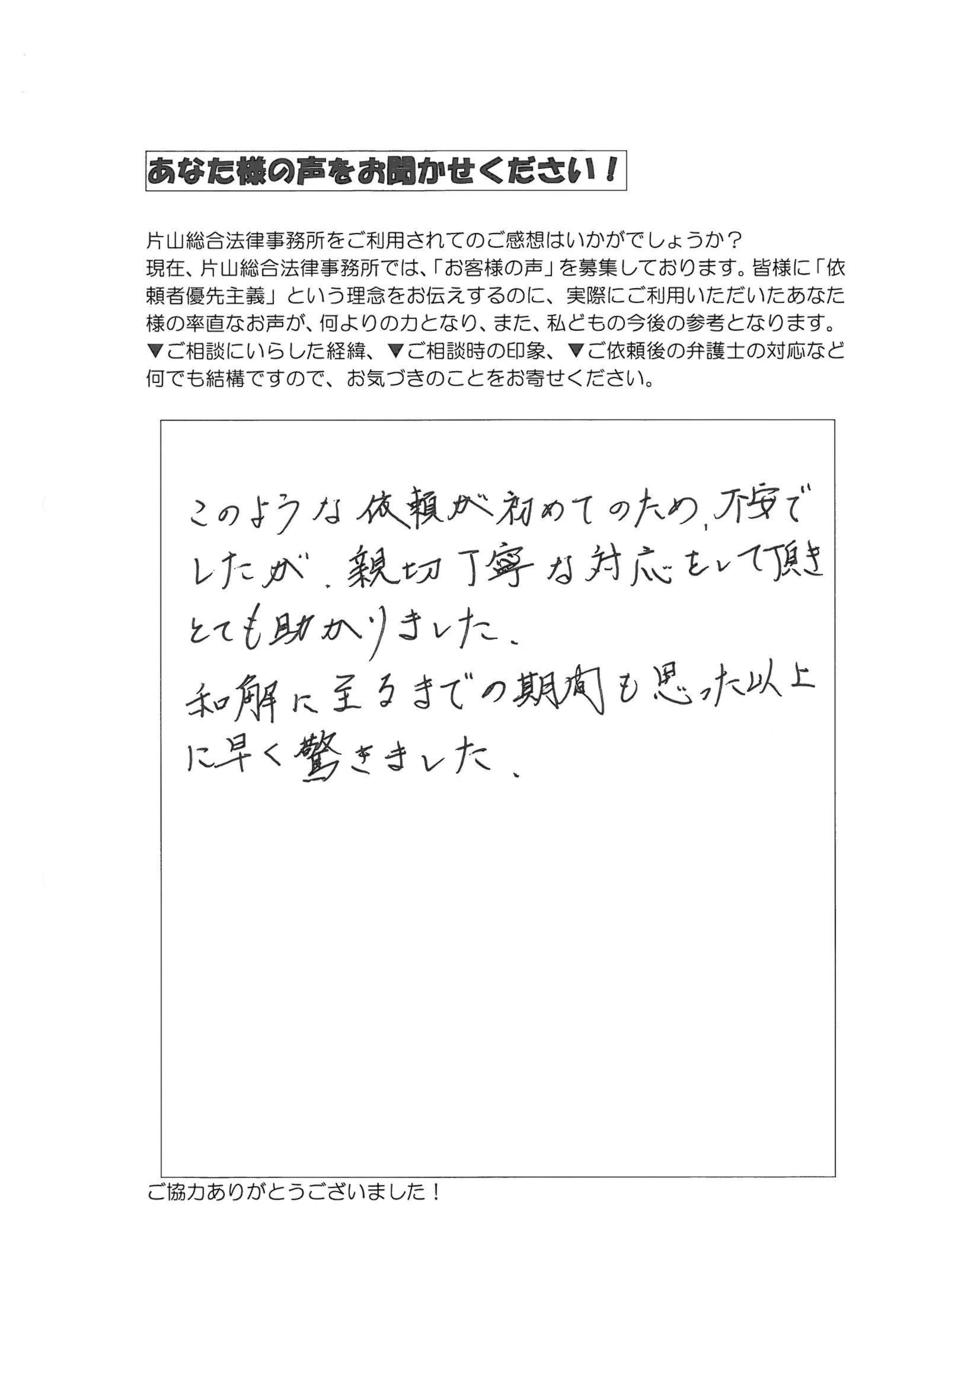 あなた様の声をお聞かせください！
片山総合法律事務所をご利用されてのご感想はいかがでしょうか？
現在、片山総合法律事務所では、「お客様の声」を募集しております。皆様に「依
頼者優先主義」という理念をお伝えするのに、実際にご利用いただいたあなた
様の率直なお声が、何よりの力となり、また、私どもの今後の参考となります。
▼ご相談にいらした経緯、▼ご相談時の印象、▼ご依頼後の弁護士の対応など
何でも結構ですので、お気づきのことをお寄せください。
このような依頼が初めてのため、不安で
したが、親切丁寧な対応をして頂き
とても助かりました。
和解に至るまでの期間も思った以上
に早く驚きました。
ご協力ありがとうございました！